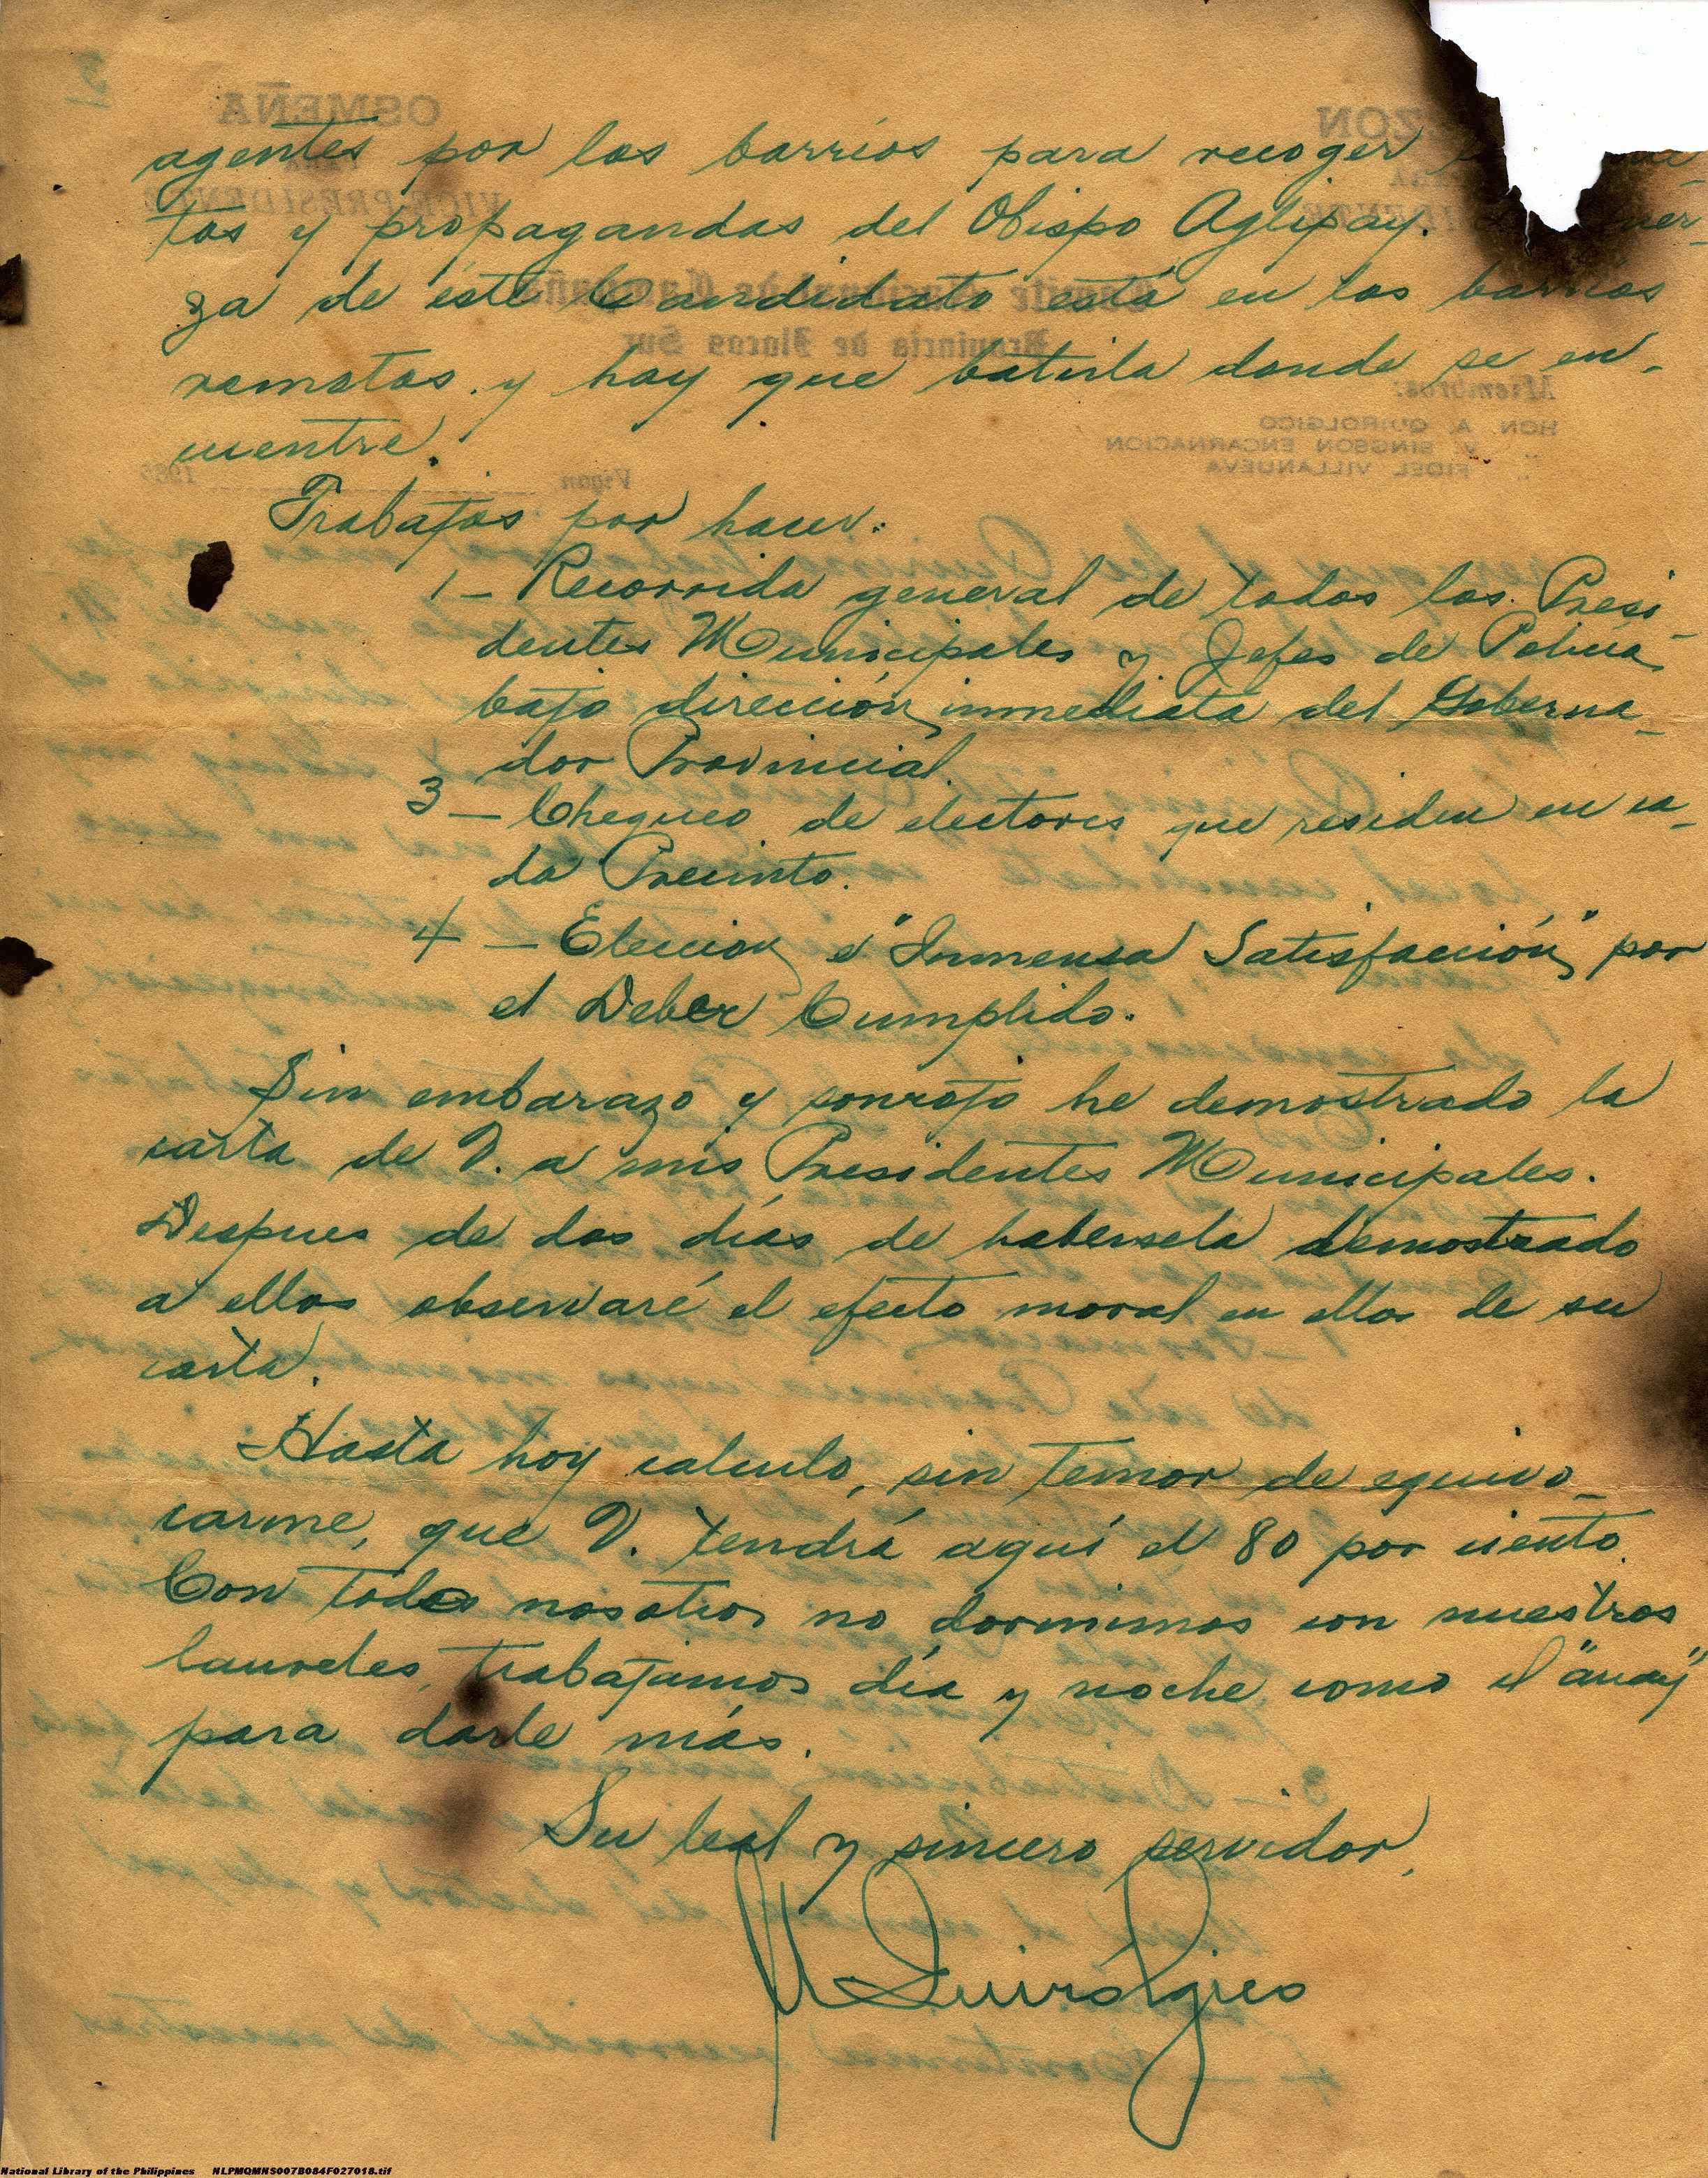 agentes por los barrios para recoger
tos y propagandas del Obispo Aglipay.
za de éste Candidato está en los barrios
remotos y hay que batirla donde se en-
cuentre.
Trabajos por hacer:
1 - Recorrida general de todos los Presi-
dentes Municipales y Jefes de Policia
bajo dirección inmediata del Goberna-
dor Provincial.
3 - Chequeo de electores que residen en ca-
da Precinto.
4 - Eleccion e "Inmensa Satisfacción" por
el Deber Cumplido.
Sin embarazo y sonrojo he demostrado la
carta de V. a mis Presidentes Municipales.
Despues de dos días de habersela demostrado
a ellos observaré el efecto moral en ellos de su
carta.
Hasta hoy calculo, sin temor de equivo-
carme, que V. tendrá aquí el 80 por ciento.
Con todo nosotros no dormimos con nuestros
laureles, trabajamos día y noche como el
para darle más.
Su leal y sincero servidor,
Quirólgico
National Library of the Philippines NLPMQMNS007B084F027018.tif